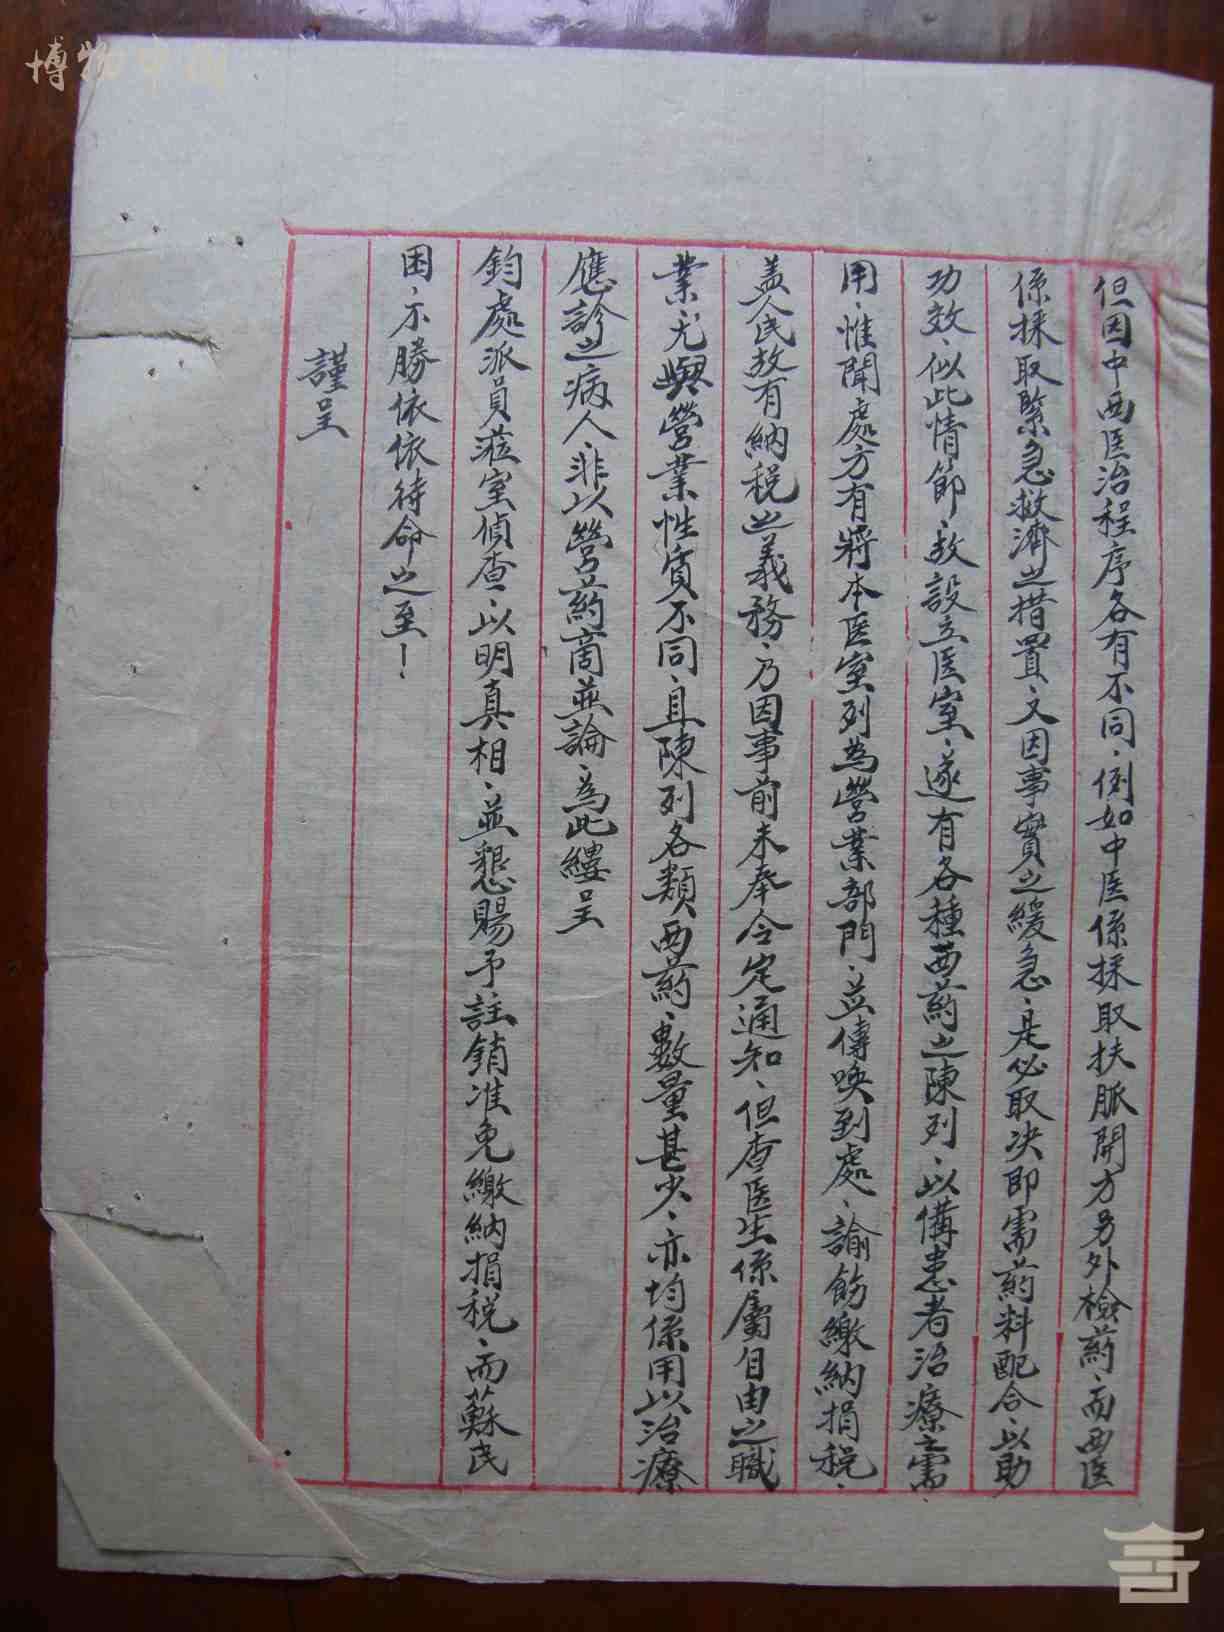 博物中國
但因中西医治程序各有不同、例如中医係採取扶脈開方另外檢葯、而西医
係採取緊急救濟之措置、又因事實之緩急、是必取决即需葯料配合、以助
功效、似此情節、故設立医室、遂有各種西葯之陳列、以備患者治療之需、
用、惟聞處方有將本医室列為營業部門、並傳喚到處、諭飭繳納捐税、
盖人民故有納税之義務、乃因事前未奉令定通知、但查医生係屬自由之職
業、尤與營業性質不同、且陳列各類西葯、數量甚少、亦均係用以治療
應診之病人、非以營葯商並論、為此縷呈
鈞處派員蒞室偵查、以明真相、並懇賜予註銷准免繳納捐税、而蘇民
困、不勝依依待命之至！
謹呈